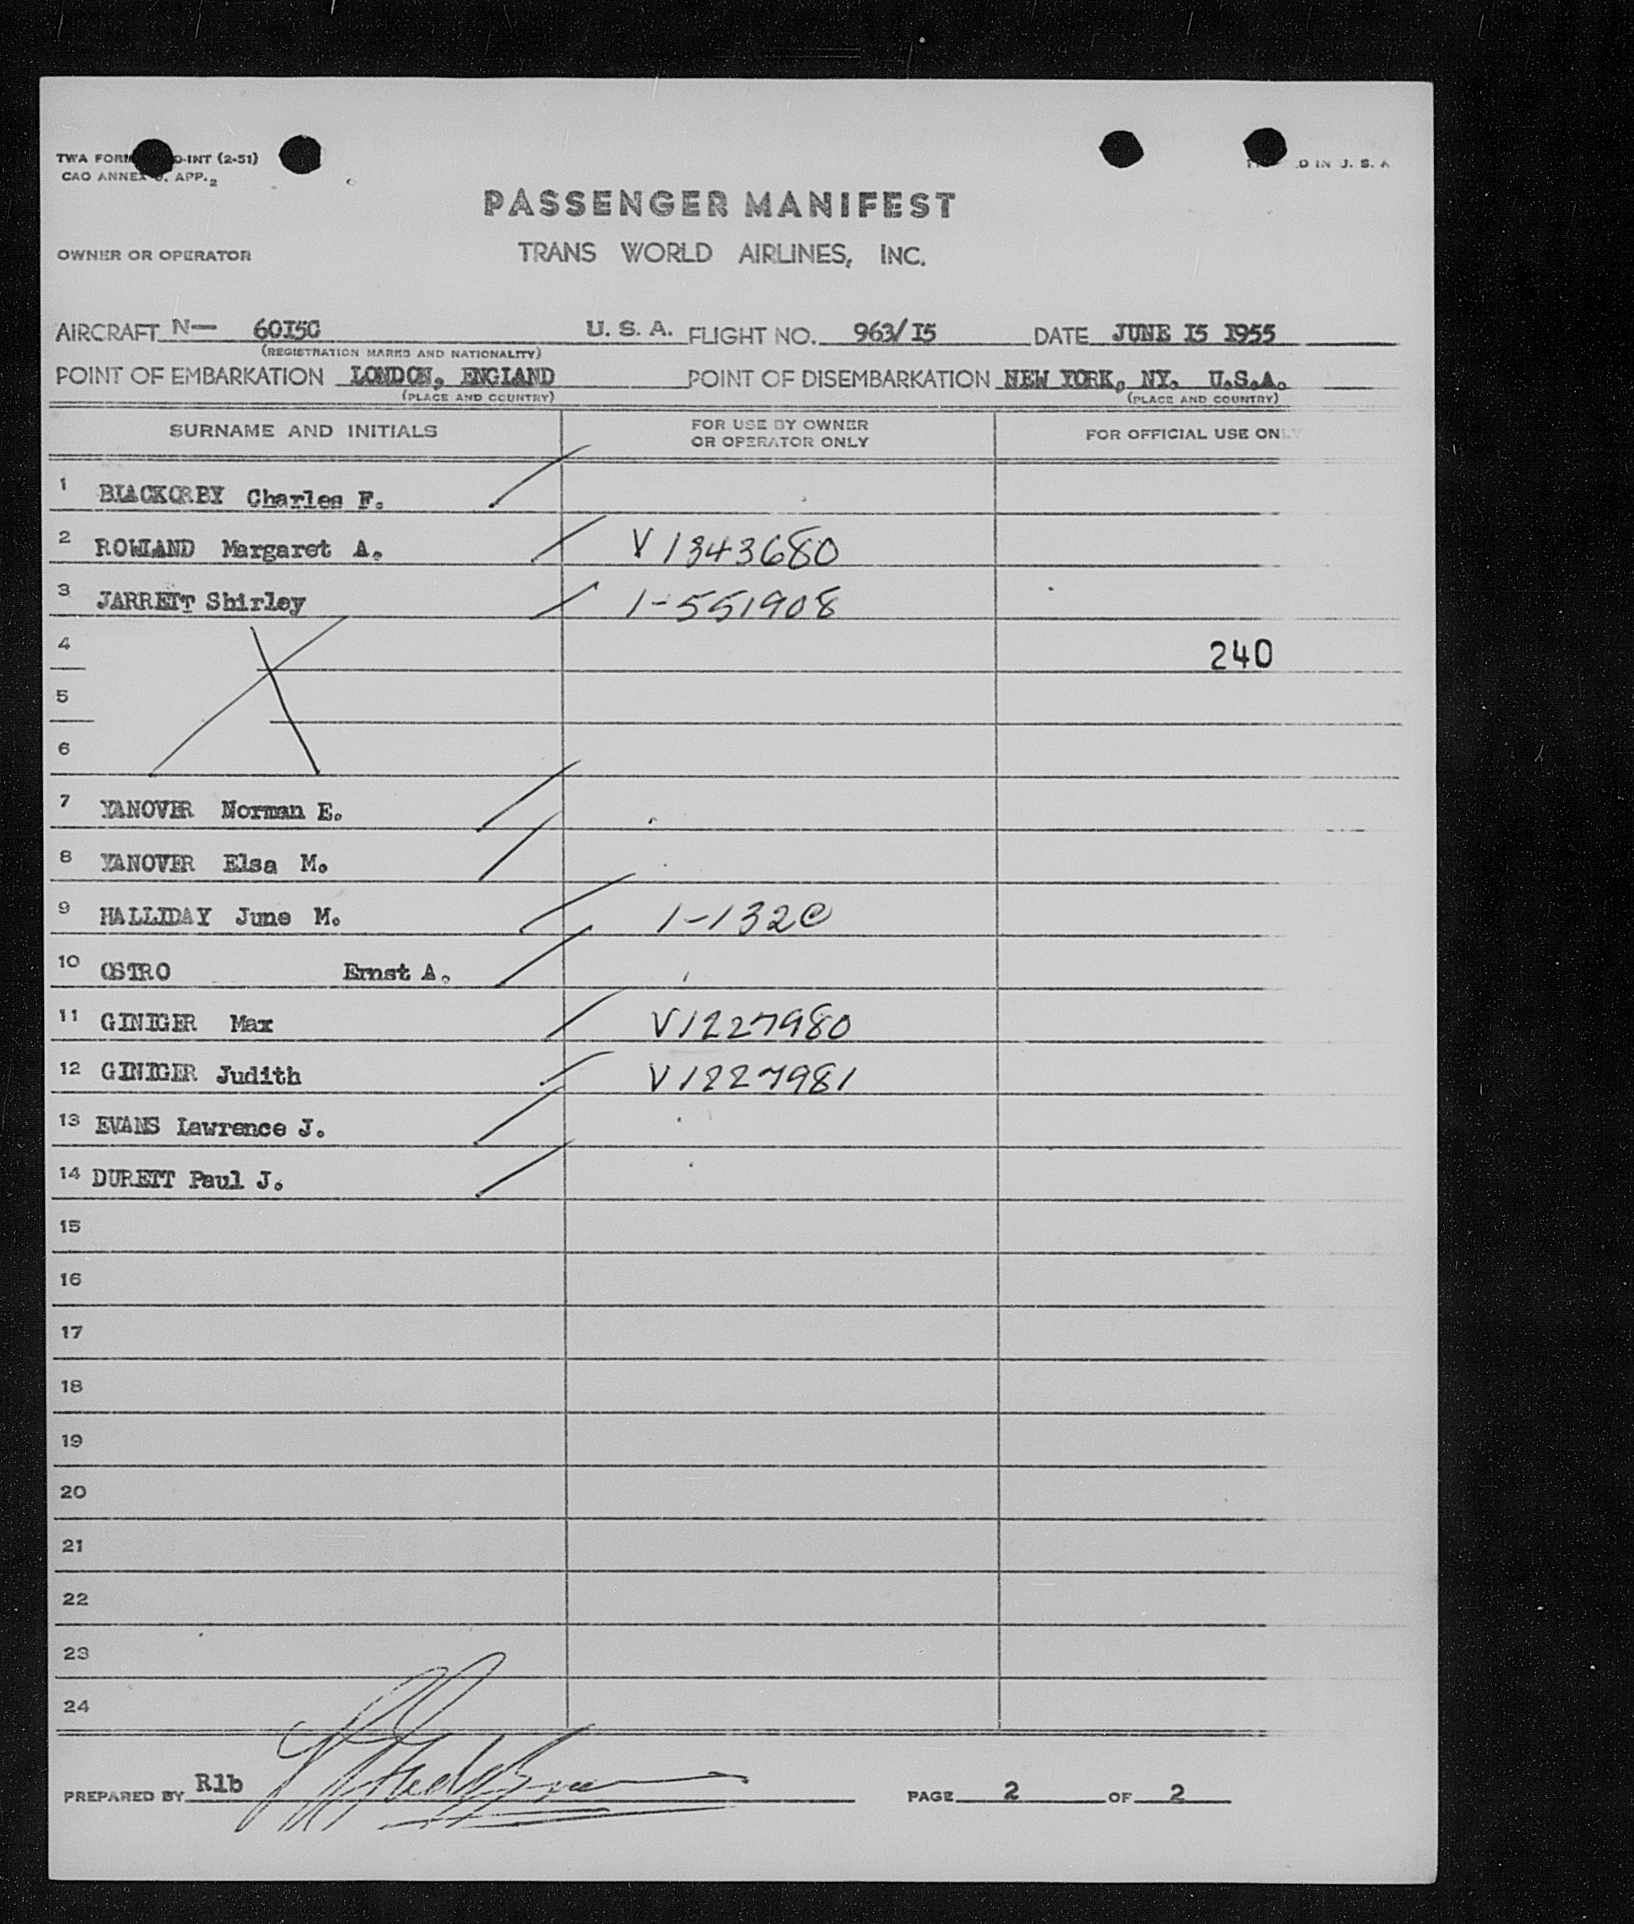 TWA FORM O-INT (2-51)
CAO ANNEX 9, APP. 2
D IN U. S. A
PASSENGER MANIFEST
OWNER OR OPERATOR TRANS WORLD AIRLINES, INC.
AIRCRAFT N— 6015C U. S. A. FLIGHT NO. 963/I5 DATE JUNE I5 I955
(REGISTRATION MARKS AND NATIONALITY)
POINT OF EMBARKATION LONDON, ENGLAND POINT OF DISEMBARKATION NEW YORK, NY. U.S.A.
(PLACE AND COUNTRY) (PLACE AND COUNTRY)
SURNAME AND INITIALS FOR USE BY OWNER OR OPERATOR ONLY FOR OFFICIAL USE ONLY
1 BLACKORBY Charles F.
2 ROWLAND Margaret A. V1343680
3 JARRETT Shirley 1-551908
4 240
5
6
7 YANOVER Norman E.
8 YANOVER Elsa M.
9 HALLIDAY June M. 1-132@
10 OSTRO Ernst A.
11 GINIGER Max V1227980
12 GINIGER Judith V1227981
13 EVANS Lawrence J.
14 DURETT Paul J.
15
16
17
18
19
20
21
22
23
24
PREPARED BY Rlb PAGE 2 OF 2